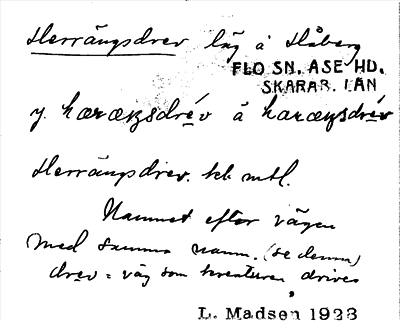 Herrängsdrev låg å Håberg
FLO SN. ÅSE HD.
SKARAB. LÄN
y. hæræŋsdrév å hæræŋsdrév
Herrängsdrev. kb mtl.
Namnet efter vägen
med samma namn. (se denna)
drev = väg som kreaturen drives
L. Madsen 1928